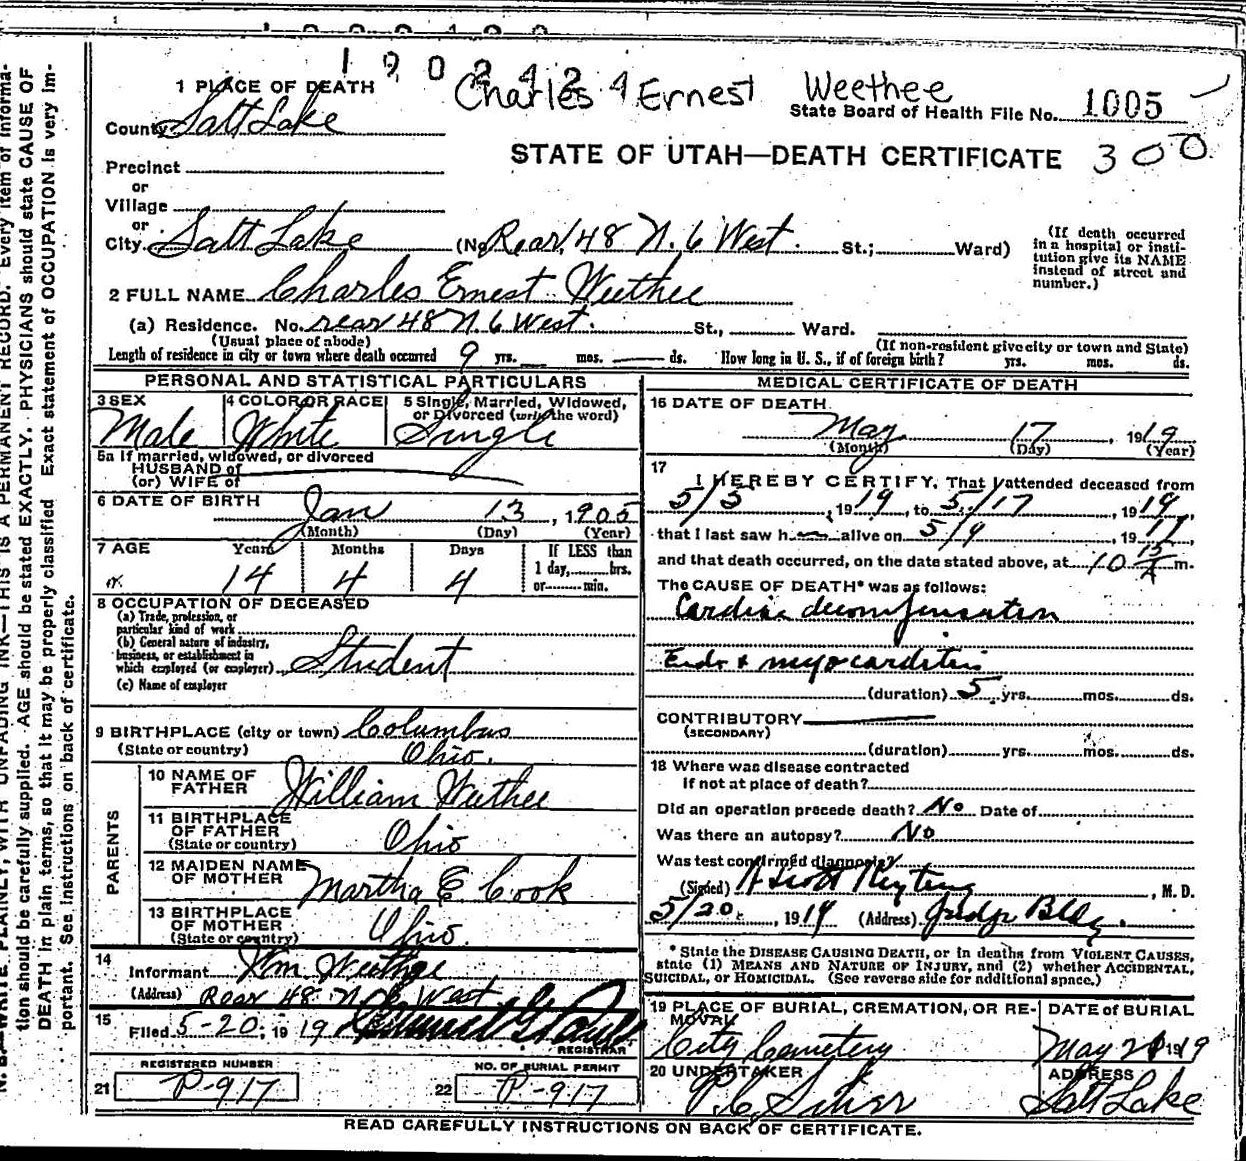 1902424
Charles Ernest Weethee
1 PLACE OF DEATH
County Salt Lake
State Board of Health File No. 1005
STATE OF UTAH—DEATH CERTIFICATE 300
Precinct
or
Village
or
City Salt Lake (No. Rear 48 N. 6 West. St.; Ward)
(If death occurred in a hospital or insti-
tution give its NAME
instead of street and
number.)
2 FULL NAME Charles Ernest Weethee
(a) Residence. No. rear 48 N 6 West. St., Ward.
(Usual place of abode) (If non-resident give city or town and State)
Length of residence in city or town where death occurred 9 yrs. mos. ds. How long in U. S., if of foreign birth? yrs. mos. ds.
PERSONAL AND STATISTICAL PARTICULARS
3 SEX 4 COLOR OR RACE 5 Single, Married, Widowed,
or Divorced (write the word)
Male White Single
5a If married, widowed, or divorced
HUSBAND of
(or) WIFE of
6 DATE OF BIRTH Jan 13, 1905
(Month) (Day) (Year)
7 AGE Years Months Days If LESS than
1 day, hrs.
or min.
14 4 4
8 OCCUPATION OF DECEASED
(a) Trade, profession, or
particular kind of work
(b) General nature of industry,
business, or establishment in
which employed (or employer) Student
(c) Name of employer
9 BIRTHPLACE (city or town) Columbus
(State or country) Ohio.
PARENTS
10 NAME OF
FATHER William Weethee
11 BIRTHPLACE
OF FATHER
(State or country) Ohio
12 MAIDEN NAME
OF MOTHER Martha E Cook
13 BIRTHPLACE
OF MOTHER
(State or country) Ohio.
14
Informant Wm Weethee
(Address) Rear 48 N 6 West
15
Filed 5-20, 1919
REGISTRAR
REGISTERED NUMBER NO. OF BURIAL PERMIT
21 P-917 22 P-917
MEDICAL CERTIFICATE OF DEATH
16 DATE OF DEATH
May 17, 1919
(Month) (Day) (Year)
17
I HEREBY CERTIFY, That I attended deceased from
5/5, 1919, to 5/17, 1919,
that I last saw h alive on 5/9, 1919,
and that death occurred, on the date stated above, at 10 15 A m.
The CAUSE OF DEATH* was as follows:
Cardiac decompensation
Endo & myocarditis
(duration) 5 yrs. mos. ds.
CONTRIBUTORY
(SECONDARY)
(duration) yrs. mos. ds.
18 Where was disease contracted
if not at place of death?
Did an operation precede death? No Date of
Was there an autopsy? No
Was test confirmed diagnosis?
(Signed) , M. D.
5/20, 1919 (Address) Judge Bldg.
* State the DISEASE CAUSING DEATH, or in deaths from VIOLENT CAUSES,
state (1) MEANS AND NATURE OF INJURY, and (2) whether ACCIDENTAL,
SUICIDAL, or HOMICIDAL. (See reverse side for additional space.)
19 PLACE OF BURIAL, CREMATION, OR RE-
MOVAL DATE of BURIAL
City Cemetery May 1919
20 UNDERTAKER ADDRESS
Salt Lake
READ CAREFULLY INSTRUCTIONS ON BACK OF CERTIFICATE.
N. B.—WRITE PLAINLY, WITH UNFADING INK—THIS IS A PERMANENT RECORD. Every item of informa-
tion should be carefully supplied. AGE should be stated EXACTLY. PHYSICIANS should state CAUSE OF
DEATH in plain terms, so that it may be properly classified. Exact statement of OCCUPATION is very im-
portant. See instructions on back of certificate.